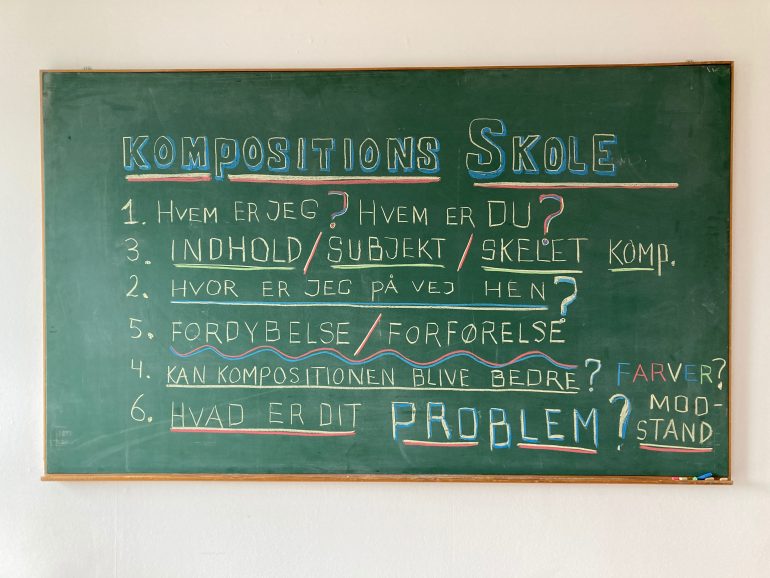 KOMPOSITIONS SKOLE
1. HVEM ER JEG? HVEM ER DU?
3. INDHOLD/SUBJEKT/SKELET KOMP.
2. HVOR ER JEG PÅ VEJ HEN?
5. FORDYBELSE/FORFØRELSE
4. KAN KOMPOSITIONEN BLIVE BEDRE? FARVER?
6. HVAD ER DIT PROBLEM? MOD-
STAND